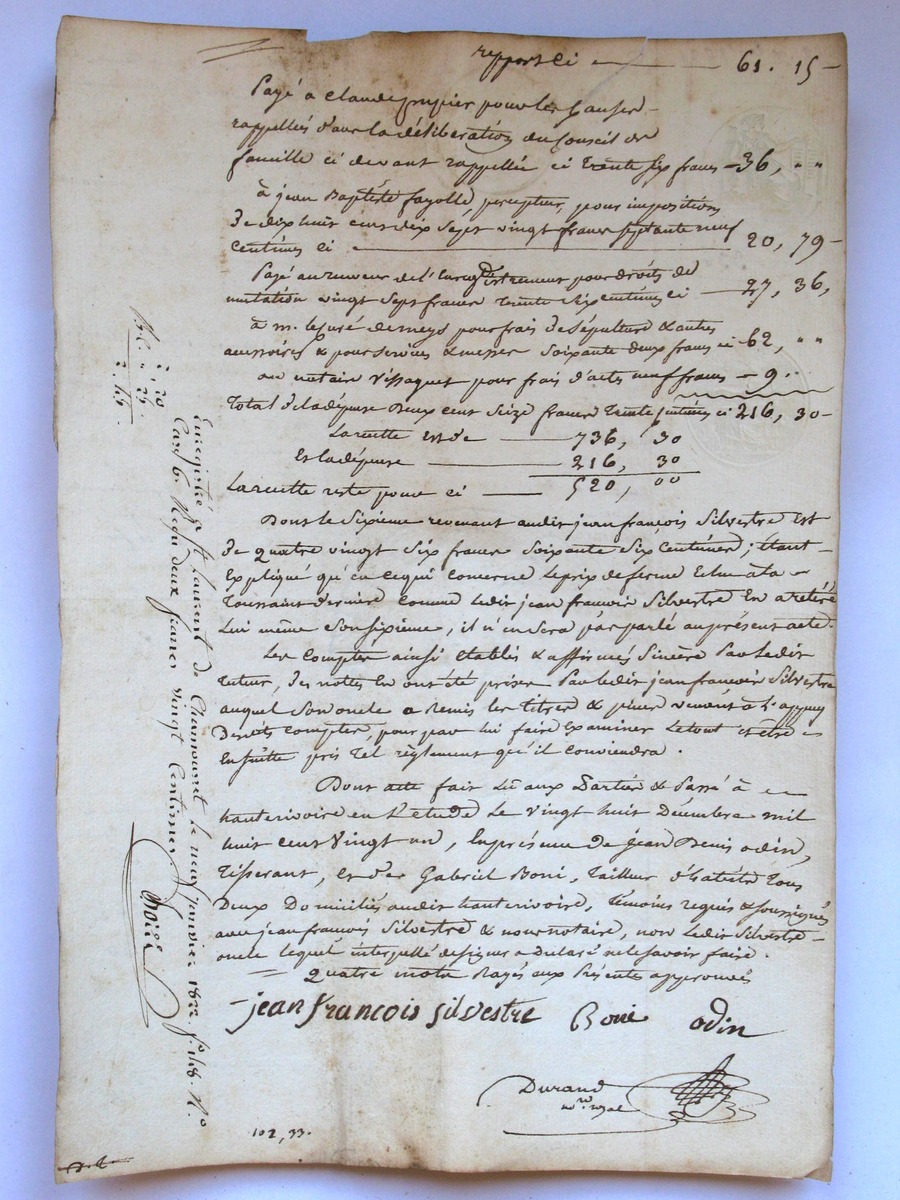 report ci ——— 61. 15
Payé a Claude pour les causes
rappellées dans la délibération du Conseil de
famille ci devant rappellée ci trente six francs — 36, " "
à jean Baptiste fayolle, percepteur, pour impositions
de dix huit cent dix sept vingt francs septante neuf
Centimes ci ——— 20, 79
Payé au receveur de l'Enregistrement pour droits de
mutation vingt sept francs trente six centimes ci — 27, 36,
à m. le curé de meys pour frais de sépulture & autres
accessoires & pour services & messes soixante deux francs ci 62, " "
au notaire Vissaguet pour frais d'actes neuf francs — 9 . .
Total de la dépense Deux cent seize francs trente centimes ci 216, 30
La recette est de ——— 736, 30
Et la dépense ——— 216, 30
La recette reste pour ci ——— 520, 00
Dont le Sixieme revenant audit jean françois Silvestre est
de quatre vingt six francs soixante six Centimes; étant
Expliqué qu'en ce qui concerne le prix de ferme échu à la
Toussaint derniere comme ledit jean francois Silvestre En a retiré
Lui même son sixieme, il n'en sera pas parlé au présent acte.
Les Comptes ainsi établis & affirmés Sincère Par ledit
tuteur, des nottes En ont été prises Par ledit jean francois Silvestre
auquel son oncle a Remis les titres & pieces venant à l'appuy
Desdits comptes, pour par lui faire Examiner Le tout et être
Ensuitte pris tel règlement qu'il conviendra.
Dont acte fait Lu aux Parties & Passé à
hauterivoire en L'étude Le vingt huit Décembre mil
huit cent vingt un, En présence de jean Denis odin,
Tisserant, et de Gabriel Boni, Tailleur d'habits Tous
Deux Domiciliés audit hauterivoire, témoins requis & soussignés
avec jean francois Silvestre & nous notaire, non ledit Silvestre
oncle lequel interpellé de signer a déclaré ne le savoir faire.
Quatre mots Rayés aux Présentes approuvés
jean francois silvestre Boni odin
Durand
nre royal
102, 33.
Enregistré a St Laurent de Chamousset le neuf janvier 1822 fo 148. Ro
Case 6. Reçu deux francs vingt Centimes
2, 20